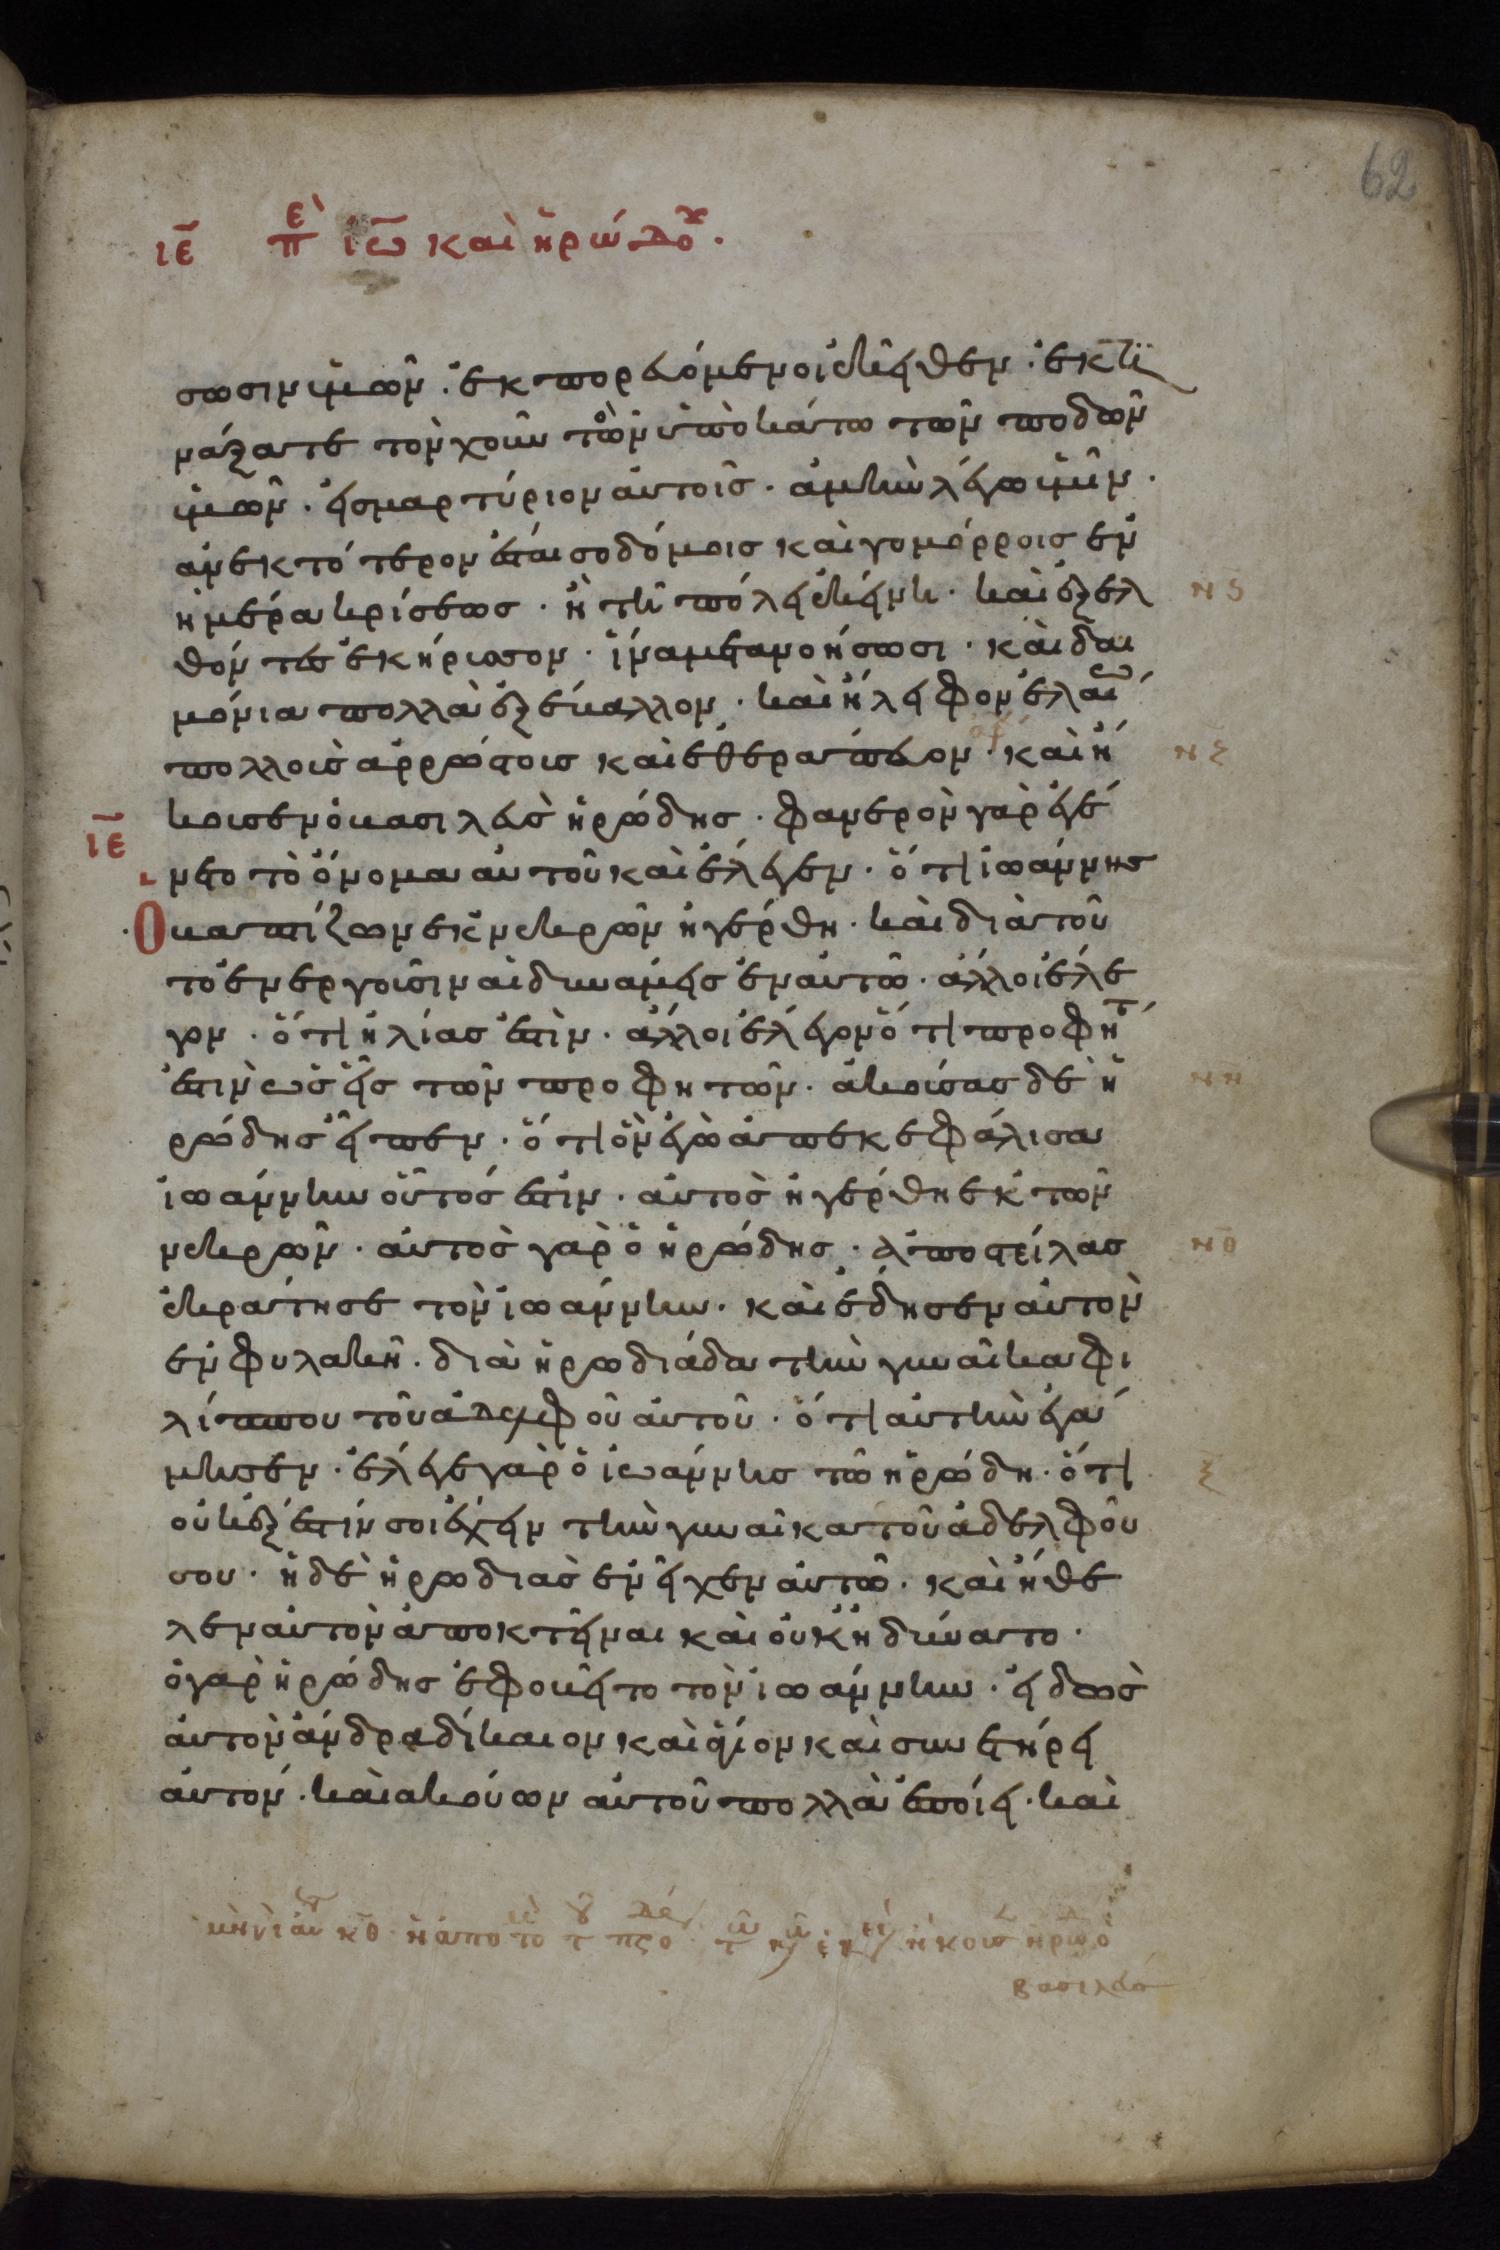 ιε περὶ ἰω καὶ ἡρώδου.
62
σωσιν ὑμῶν. ἐκπορευόμενοι ἐκεῖθεν. ἐκτι
νάξατε τὸν χοῦν τὸν ὑποκάτω τῶν ποδῶν
ὑμῶν. εἰς μαρτύριον αὐτοῖς. ἀμὴν λέγω ὑμῖν.
ἀνεκτότερον ἔσται σοδόμοις καὶ γομόρροις ἐν
ἡμέρα κρίσεως. ἢ τῆ πόλει ἐκείνη. καὶ ἐξελ
νς
θόντες ἐκήρυσσον. ἵνα μετανοήσωσι. καὶ δαι
μόνια πολλὰ ἐξέβαλλον. καὶ ἤλειφον ἐλαίω
πολλοὺς ἀρρώστους καὶ ἐθεράπευον. καὶ ἤ
νζ
κουσεν ὁ βασιλεὺς ἡρώδης. φανερὸν γὰρ ἐγέ
ιε
νετο τὸ ὄνομα αὐτοῦ καὶ ἔλεγεν. ὅτι ἰωάννης
Ο βαπτίζων ἐκ νεκρῶν ἠγέρθη. καὶ διὰ τοῦ
το ἐνεργοῦσιν αἱ δυνάμεις ἐν αὐτῶ. ἄλλοι ἔλε
γον. ὅτι ἠλίας ἐστίν. ἄλλοι ἔλεγον ὅτι προφήτ
ἐστιν ὡς εἷς τῶν προφητῶν. ἀκούσας δὲ ἡ
νη
ρώδης εἶπεν. ὅτι ὃν ἐγὼ ἀπεκεφάλισα
ἰωάννην οὗτός ἐστιν. αὐτὸς ἠγέρθη ἐκ τῶν
νεκρῶν. αὐτὸς γὰρ ὁ ἡρώδης. ἀποστείλας
νθ
ἐκράτησε τὸν ἰωάννην. καὶ ἔδησεν αὐτὸν
ἐν φυλακῆ. διὰ ἡρωδιάδα τὴν γυναῖκα φι
λίππου τοῦ ἀδελφοῦ αὐτοῦ. ὅτι αὐτὴν ἐγά
μησεν. ἔλεγε γὰρ ὁ ἰωάννης τῶ ἡρώδη. ὅτι
ξ
οὐκ ἔξεστίν σοι ἔχειν τὴν γυναῖκα τοῦ ἀδελφοῦ
σου. ἡ δὲ ἡρωδιὰς ἐνεῖχεν αὐτῶ. καὶ ἤθε
λεν αὐτὸν ἀποκτεῖναι καὶ οὐκ ἠδύνατο.
ὁ γὰρ ἡρώδης ἐφοβεῖτο τὸν ἰωάννην. εἰδὼς
αὐτὸν ἄνδρα δίκαιον καὶ ἅγιον καὶ συνετήρει
αὐτόν. καὶ ἀκούων αὐτοῦ πολλὰ ἐποίει. καὶ
ἤκουσ ἡρώδ ὁ
βασιλεύσ